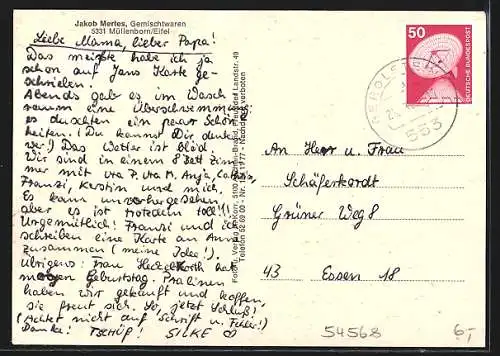 Jakob Mertes, Gemischtwaren
5331 Müllenborn/Eifel
Liebe Mama, lieber Papa!
Das meiste habe ich ja
schon auf Jans Karte ge-
schrieben.
Abends gab es im Wasch
raum eine Überschwemmung,
es duschten ein paar Schön
heiten! (Du kannst Dir denken
wer!) Das Wetter ist blöd.
Wir sind in einem 8 Bett Zim
mer mit Uta P, Uta M, Anja,
Franzi, Kerstin und mich.
Es kam unvorhergesehen,
aber es ist trotzdem toll!!!
Urgemütlich! Franzi und ich
schreiben eine Karte an
zusammen (meine Idee!).
Übrigens: Frau hat
morgen Geburtstag. Pralinen
haben wir gekauft und hoffen,
sie freut sich. So, jetzt Schluß!
(Achtet nicht auf Schrift u. Fehler!)
Danke! TSCHÜß! SILKE
Nachdruck verboten
50
DEUTSCHE BUNDESPOST
GEROLSTEIN
553
An Herr u. Frau
Schäferkordt
Grüner Weg 8
43 Essen 18
54568
6,-